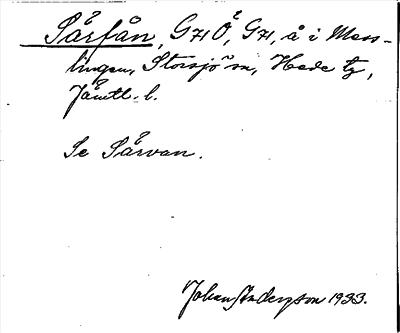 Sårfån, GHÖ, GH, å i Mess-
lingen, Storsjö sn, Hede tg,
Jämtl. l.
Se Sårvan.
Johan Anderzson 1933.